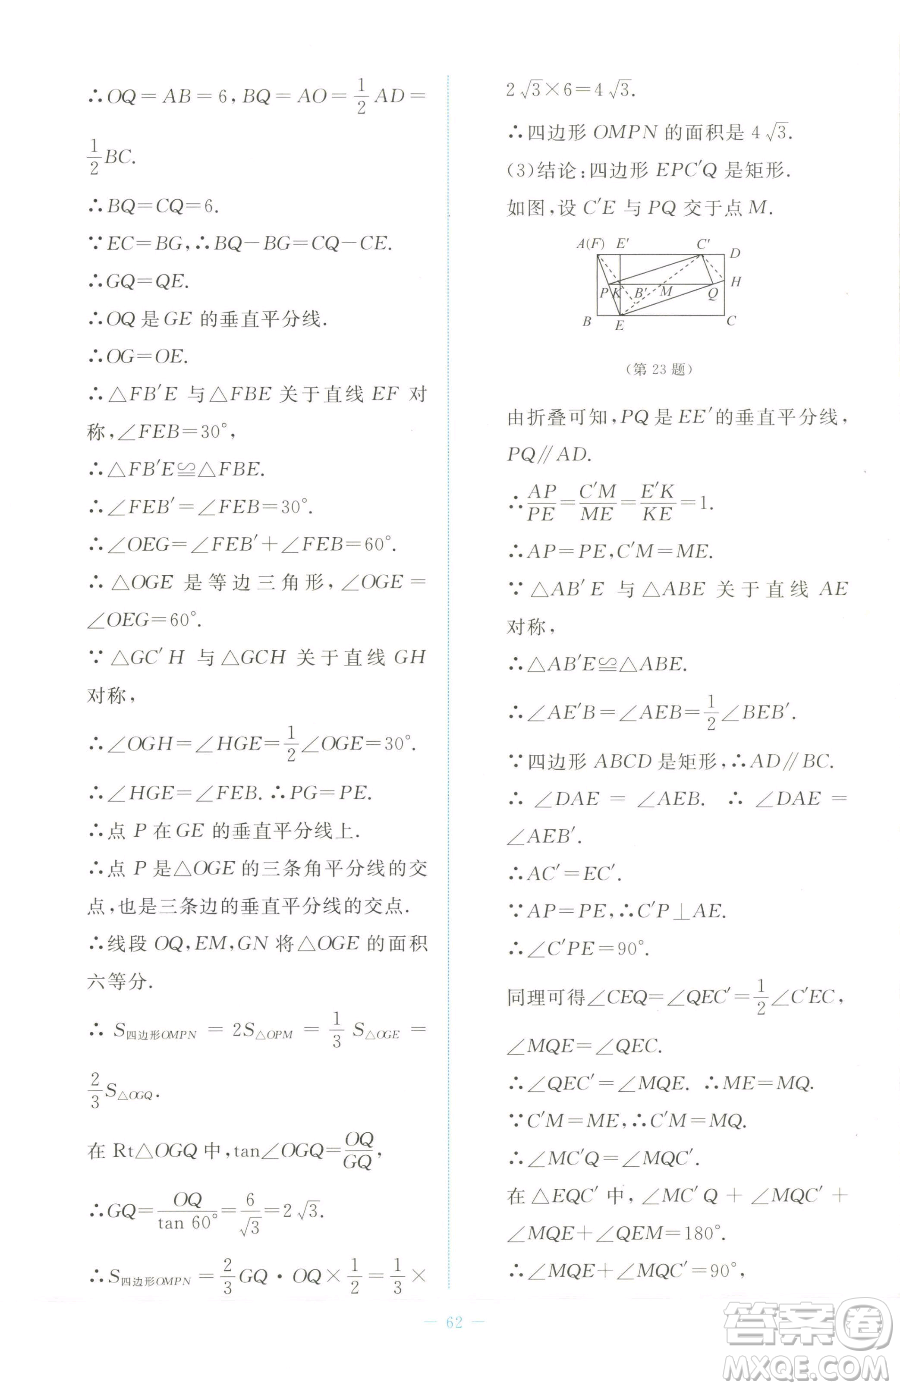 ∴OQ=AB=6,BQ=AO=1/2 AD=
1/2 BC.
∴BQ=CQ=6.
∵EC=BG,∴BQ−BG=CQ−CE.
∴GQ=QE.
∴OQ 是 GE 的垂直平分线.
∴OG=OE.
∴△FB′E 与△FBE 关于直线 EF 对
称,∠FEB=30°,
∴△FB′E≌△FBE.
∴∠FEB′=∠FEB=30°.
∴∠OEG=∠FEB′+∠FEB=60°.
∴△OGE 是等边三角形,∠OGE=
∠OEG=60°.
∵△GC′H 与△GCH 关于直线 GH
对称,
∴∠OGH=∠HGE=1/2∠OGE=30°.
∴∠HGE=∠FEB.∴PG=PE.
∴点 P 在 GE 的垂直平分线上.
∴点 P 是△OGE 的三条角平分线的交
点,也是三条边的垂直平分线的交点.
∴线段 OQ,EM,GN 将△OGE 的面积
六等分.
∴S四边形OMPN=2S△OPM=1/3 S△OGE=
2/3 S△OGQ.
在 Rt△OGQ 中,tan∠OGQ=OQ/GQ,
∴GQ=OQ/tan 60°=6/√3=2√3.
∴S四边形OMPN=2/3 GQ·OQ×1/2=1/3×
2√3×6=4√3.
∴四边形 OMPN 的面积是 4√3.
(3)结论:四边形 EPC′Q 是矩形.
如图,设 C′E 与 PQ 交于点 M.
A(F) E′ C′ D
H
P K B′ M Q
B E C
(第 23 题)
由折叠可知,PQ 是 EE′的垂直平分线,
PQ∥AD.
∴AP/PE=C′M/ME=E′K/KE=1.
∴AP=PE,C′M=ME.
∵△AB′E 与△ABE 关于直线 AE
对称,
∴△AB′E≌△ABE.
∴∠AE′B=∠AEB=1/2∠BEB′.
∵四边形 ABCD 是矩形,∴AD∥BC.
∴∠DAE=∠AEB. ∴∠DAE=
∠AEB′.
∴AC′=EC′.
∵AP=PE,∴C′P⊥AE.
∴∠C′PE=90°.
同理可得∠CEQ=∠QEC′=1/2∠C′EC,
∠MQE=∠QEC.
∴∠QEC′=∠MQE. ∴ME=MQ.
∵C′M=ME,∴C′M=MQ.
∴∠MC′Q=∠MQC′.
在△EQC′中,∠MC′Q+∠MQC′+
∠MQE+∠QEM=180°.
∴∠MQE+∠MQC′=90°,
— 62 —
答案圈
MXQE.COM